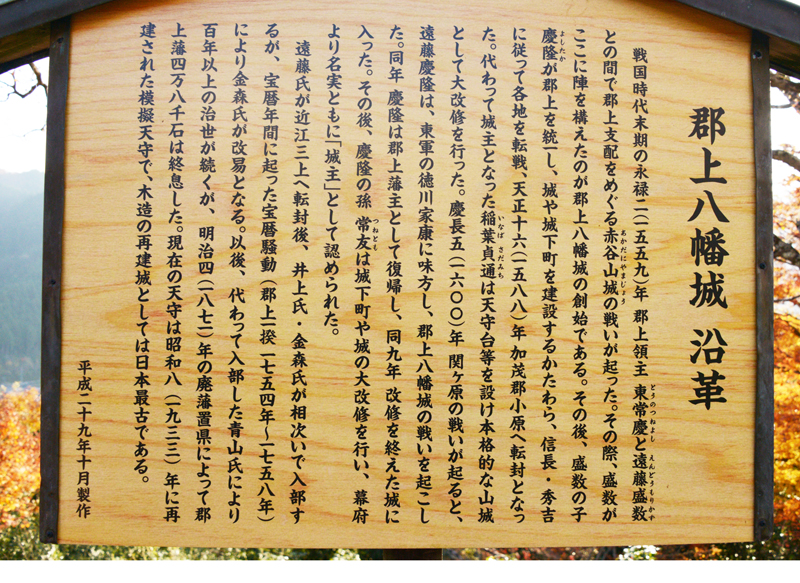 郡上八幡城 沿革
戦国時代末期の永禄二(一五五九)年 郡上領主 東常慶と遠藤盛数
との間で郡上支配をめぐる赤谷山城の戦いが起った。その際、盛数が
ここに陣を構えたのが郡上八幡城の創始である。その後、盛数の子
慶隆が郡上を統一し、城や城下町を建設するかたわら、信長・秀吉
に従って各地を転戦、天正十六(一五八八)年 加茂郡小原へ転封となっ
た。代わって城主となった稲葉貞通は天守台等を設け本格的な山城
として大改修を行った。慶長五(一六〇〇)年 関ヶ原の戦いが起ると、
遠藤慶隆は、東軍の徳川家康に味方し、郡上八幡城の戦いを起こし
た。同年 慶隆は郡上藩主として復帰し、同九年 改修を終えた城に
入った。その後、慶隆の孫 常友は城下町や城の大改修を行い、幕府
より名実ともに「城主」として認められた。
遠藤氏が近江三上へ転封後、井上氏・金森氏が相次いで入部す
るが、宝暦年間に起った宝暦騒動(郡上一揆 一七五四年～一七五八年)
により金森氏が改易となる。以後、代わって入部した青山氏により
百年以上の治世が続くが、明治四(一八七一)年の廃藩置県によって郡
上藩四万八千石は終息した。現在の天守は昭和八(一九三三)年に再
建された模擬天守で、木造の再建城としては日本最古である。
平成二十九年十月製作
とうのつねよし
えんどうもりかず
あかだにやまじょう
よしたか
いなば さだみち
つねとも